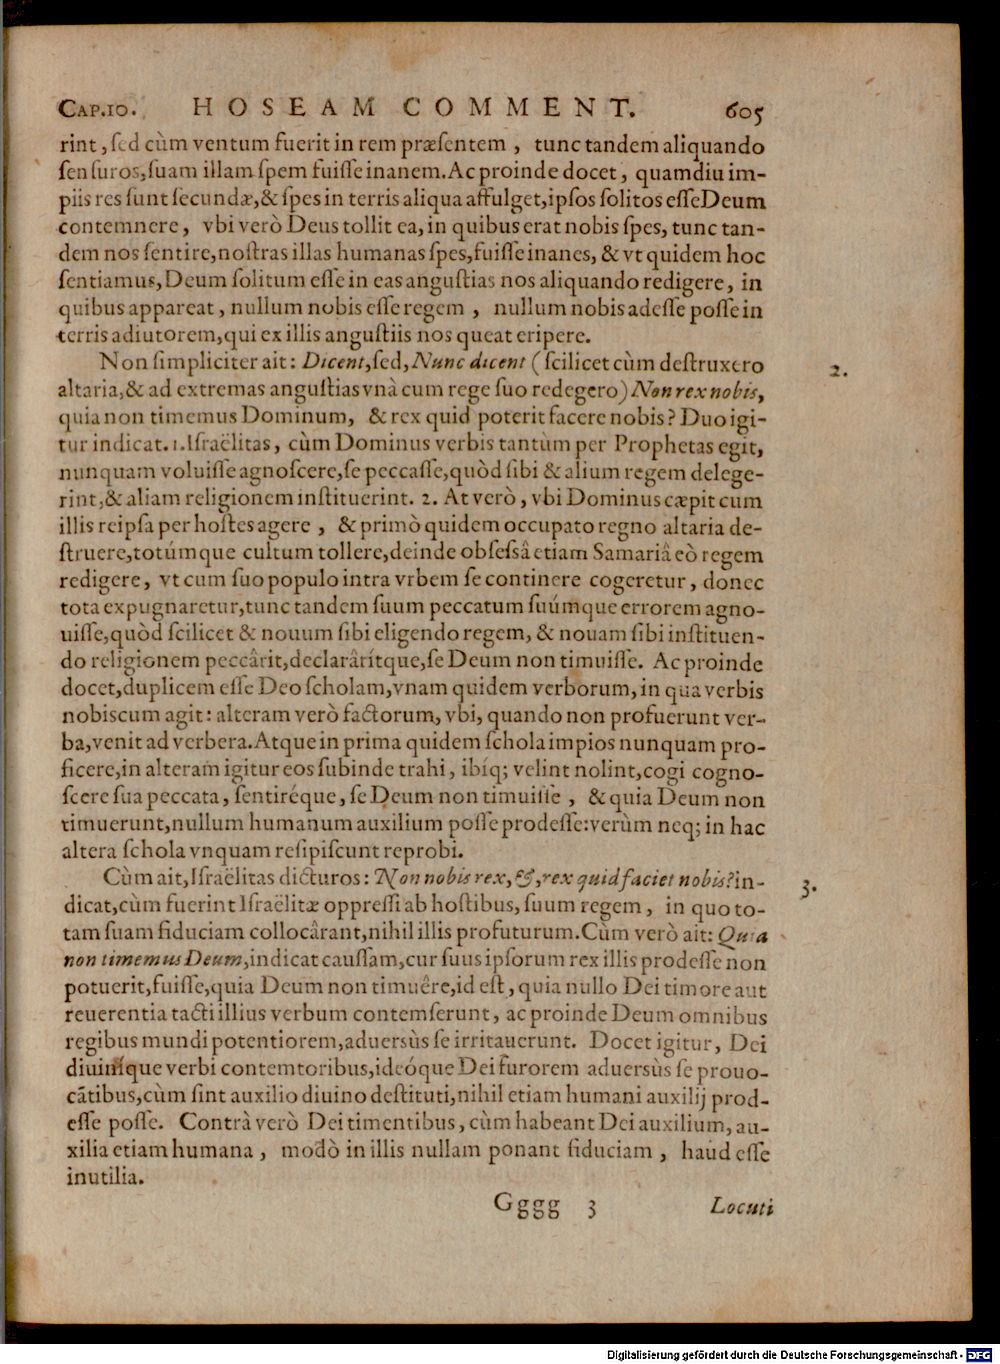 CAP.10. HOSEAM COMMENT. 605
rint, ſed cùm ventum fuerit in rem præſentem, tunc tandem aliquando
ſenſuros, ſuam illam ſpem fuiſſe inanem. Ac proinde docet, quamdiu im-
piis res ſunt ſecundæ, & ſpes in terris aliqua affulget, ipſos ſolitos eſſe Deum
contemnere, vbi verò Deus tollit ea, in quibus erat nobis ſpes, tunc tan-
dem nos ſentire, noſtras illas humanas ſpes, fuiſſe inanes, & vt quidem hoc
ſentiamus, Deum ſolitum eſſe in eas anguſtias nos aliquando redigere, in
quibus appareat, nullum nobis eſſe regem, nullum nobis adeſſe poſſe in
terris adiutorem, qui ex illis anguſtiis nos queat eripere.
Non ſimpliciter ait: Dicent, ſed, Nunc dicent (ſcilicet cùm deſtruxero
2.
altaria, & ad extremas anguſtias vnà cum rege ſuo redegero) Non rex nobis,
quia non timemus Dominum, & rex quid poterit facere nobis? Duo igi-
tur indicat. 1. Iſraëlitas, cùm Dominus verbis tantùm per Prophetas egit,
nunquam voluiſſe agnoſcere, ſe peccaſſe, quòd ſibi & alium regem delege-
rint, & aliam religionem inſtituerint. 2. At verò, vbi Dominus cæpit cum
illis reipſa per hoſtes agere, & primò quidem occupato regno altaria de-
ſtruere, totúmque cultum tollere, deinde obſeſsâ etiam Samariâ eò regem
redigere, vt cum ſuo populo intra vrbem ſe continere cogeretur, donec
tota expugnaretur, tunc tandem ſuum peccatum ſuúmque errorem agno-
uiſſe, quòd ſcilicet & nouum ſibi eligendo regem, & nouam ſibi inſtituen-
do religionem peccârit, declarârítque, ſe Deum non timuiſſe. Ac proinde
docet, duplicem eſſe Deo ſcholam, vnam quidem verborum, in qua verbis
nobiscum agit: alteram verò factorum, vbi, quando non profuerunt ver-
ba, venit ad verbera. Atque in prima quidem ſchola impios nunquam pro-
ficere, in alteram igitur eos ſubinde trahi, ibíq; velint nolint, cogi cogno-
ſcere ſua peccata, ſentiréque, ſe Deum non timuiſſe, & quia Deum non
timuerunt, nullum humanum auxilium poſſe prodeſſe: verùm neq; in hac
altera ſchola vnquam reſipiſcunt reprobi.
Cùm ait, Iſraëlitas dicturos: Non nobis rex, &, rex quid faciet nobis? in-
3.
dicat, cùm fuerint Iſraëlitæ oppreſſi ab hoſtibus, ſuum regem, in quo to-
tam ſuam fiduciam collocârant, nihil illis profuturum. Cùm verò ait: Quia
non timemus Deum, indicat cauſſam, cur ſuus ipſorum rex illis prodeſſe non
potuerit, fuiſſe, quia Deum non timuêre, id eſt, quia nullo Dei timore aut
reuerentia tacti illius verbum contemſerunt, ac proinde Deum omnibus
regibus mundi potentiorem, aduersùs ſe irritauerunt. Docet igitur, Dei
diuiníque verbi contemtoribus, ideóque Dei furorem aduersùs ſe prouo-
cãtibus, cùm ſint auxilio diuino deſtituti, nihil etiam humani auxilij prod-
eſſe poſſe. Contrà verò Dei timentibus, cùm habeant Dei auxilium, au-
xilia etiam humana, modò in illis nullam ponant fiduciam, haud eſſe
inutilia.
Gggg 3 Locuti
Digitalisierung gefördert durch die Deutsche Forschungsgemeinschaft - DFG